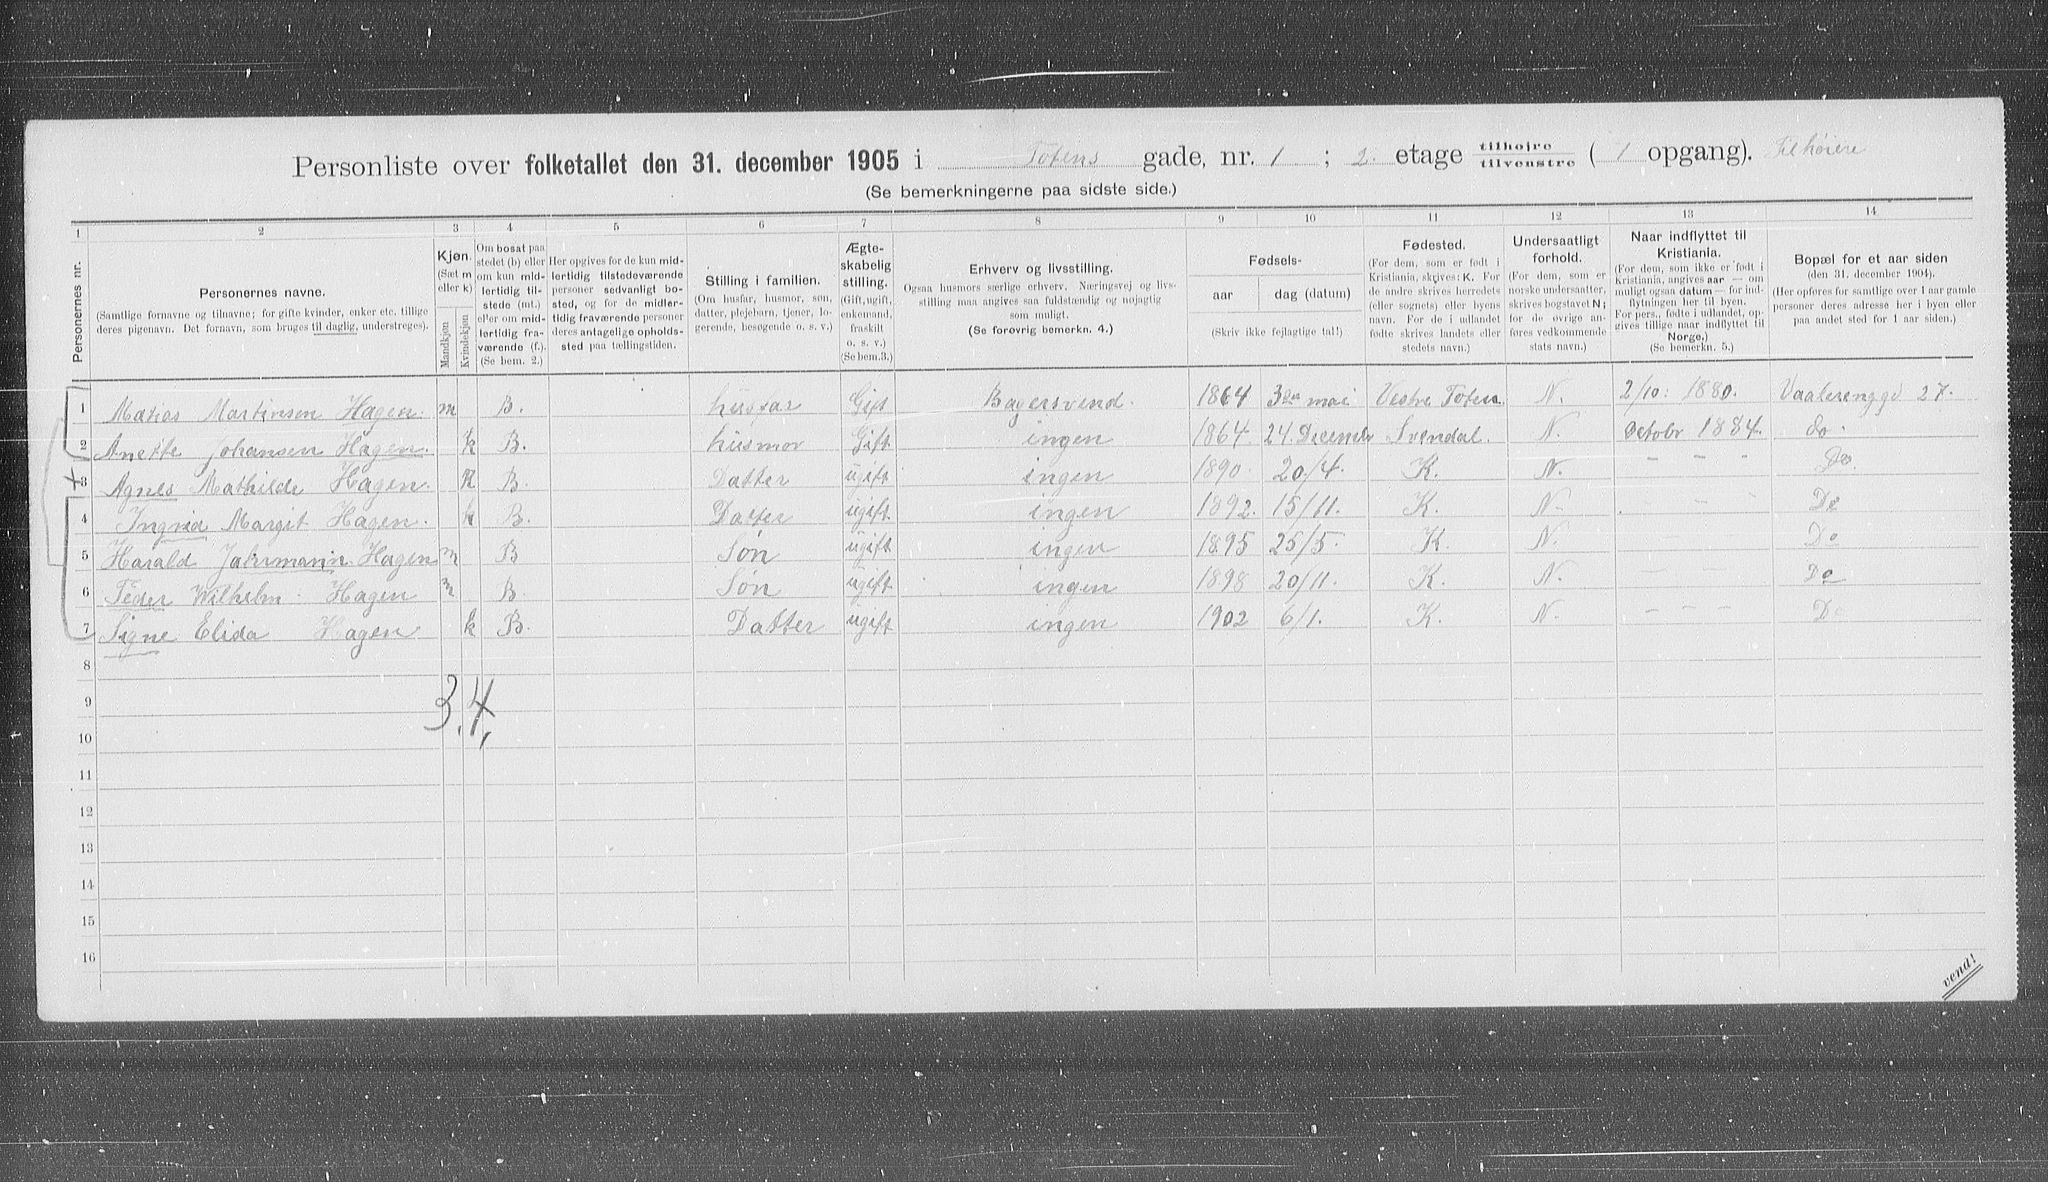 Personliste over folketallet den 31. december 1905 i Totens gade, nr. 1 ; 2. etage tilhøjre / tilvenstre ( 1 opgang). Tilhøiere
(Se bemerkningerne paa sidste side.)
1 2 3 4 5 6 7 8 9 10 11 12 13 14
Personernes nr.
Personernes navne.
(Samtlige fornavne og tilnavne; for gifte kvinder, enker etc. tillige
deres pigenavn. Det fornavn, som bruges til daglig, understreges).
Kjøn.
(Sæt m
eller k)
Mandkjøn
Kvindekjøn
Om bosat paa
stedet (b) eller
om kun mid-
lertidig til-
stede (mt.)
eller om mid-
lertidig fra-
værende (f.).
(Se bem. 2.)
Her opgives for de kun mid-
lertidig tilstedeværende
personer sedvanligt bo-
sted, og for de midler-
tidig fraværende personer
deres antagelige opholds-
sted paa tællingstiden.
Stilling i familien.
(Om husfar, husmor, søn,
datter, plejebarn, tjener, lo-
gerende, besøgende o. s. v.)
Ægte-
skabelig
stilling.
(Gift, ugift,
enkemand,
fraskilt
o. s. v.)
(Se bem.3.)
Erhverv og livsstilling.
Ogsaa husmors særlige erhverv. Næringsvej og livs-
stilling maa angives saa fuldstændig og nøjagtig
som muligt.
(Se forøvrig bemerkn. 4.)
Fødsels-
aar dag (datum)
(Skriv ikke fejlagtige tal!)
Fødested.
(For dem, som er født i
Kristiania, skrives: K. For
de andre skrives herredets
(eller sognets) eller byens
navn. For de i udlandet
fødte skrives landets eller
stedets navn.)
Undersaatligt
forhold.
(For dem, som er
norske undersaatter,
skrives bogstavet N;
for de øvrige an-
føres vedkommende
stats navn.)
Naar indflyttet til
Kristiania.
(For dem, som ikke er født i
Kristiania, angives aar — om
muligt ogsaa datum — for ind-
flytningen her til byen.
For pers., fødte i udlandet, op-
gives tillige naar indflyttet til
Norge.)
(Se bemerkn. 5.)
Bopæl for et aar siden
(den 31. december 1904).
(Her opføres for samtlige over 1 aar gamle
personer deres adresse her i byen eller
paa andet sted for 1 aar siden.)
1 Matias Martinsen Hagen. m B. husfar Gift Bagersvend. 1864 3die mai Vestre Toten N. 2/10: 1880. Vaalerenggd 27.
2 Anette Johansen Hagen. k B. husmor Gift ingen 1864. 24 Decembr Svendal. N. Octobr 1884. do.
3 Agnes Mathilde Hagen. k B. Datter ugift ingen 1890. 20/4. K. N. - - - Do.
4 Ingrid Margit Hagen. k B. Datter ugift ingen 1892. 15/11. K. N. - - - Do
5 Harald Jahrmann Hagen m B Søn ugift ingen 1895 25/5. K. N. - - - Do
6 Peder Wilhelm Hagen m B. Søn ugift ingen 1898 20/11. K. N. - - - Do
7 Signe Elida Hagen k B. Datter ugift ingen 1902 6/1. K. N. - - - Do
8
9 3.4,
10
11
12
13
14
15
16
vend!